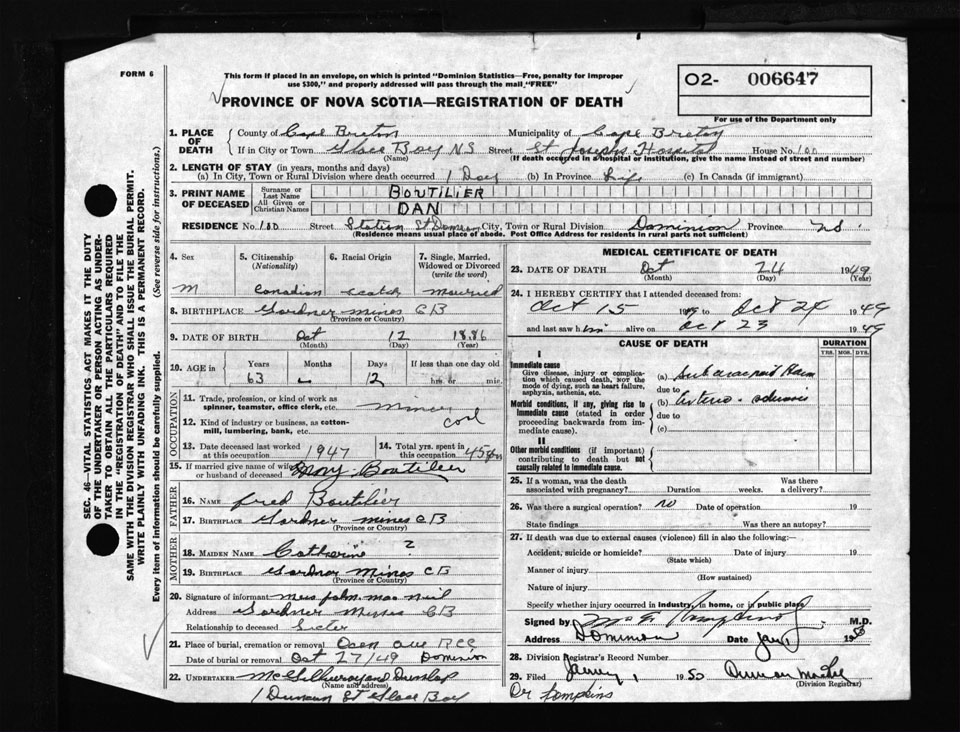 FORM 6
This form if placed in an envelope, on which is printed "Dominion Statistics—Free, penalty for improper
use $300," and properly addressed will pass through the mail "FREE"
O2- 006647
PROVINCE OF NOVA SCOTIA—REGISTRATION OF DEATH
For use of the Department only
1. PLACE OF DEATH
County of Cape Breton Municipality of Cape Breton
If in City or Town Glace Bay NS Street St Josephs Hospital House No. 100
(Name) (If death occurred in a hospital or institution, give the name instead of street and number)
2. LENGTH OF STAY (in years, months and days)
(a) In City, Town or Rural Division where death occurred 1 Day (b) In Province Life (c) In Canada (if immigrant)
3. PRINT NAME OF DECEASED
Surname or Last Name BOUTILIER
All Given or Christian Names DAN
RESIDENCE No. 100 Street Station St Dominion City, Town or Rural Division Dominion Province NS.
(Residence means usual place of abode. Post Office Address for residents in rural parts not sufficient)
4. Sex 5. Citizenship (Nationality) 6. Racial Origin 7. Single, Married, Widowed or Divorced (write the word)
M Canadian Scotch Married
8. BIRTHPLACE Gardner mines CB
(Province or Country)
9. DATE OF BIRTH Oct 12 1886
(Month) (Day) (Year)
10. AGE in Years Months Days If less than one day old
63 12 hrs. or min.
OCCUPATION
11. Trade, profession, or kind of work as
spinner, teamster, office clerk, etc.
12. Kind of industry or business, as cotton-
mill, lumbering, bank, etc. coal
13. Date deceased last worked at this occupation 1947
14. Total yrs. spent in this occupation 45 yrs
15. If married give name of wife or husband of deceased May Boutilier
FATHER
16. NAME Fred Boutilier
17. BIRTHPLACE Gardner mines CB
(Province or Country)
MOTHER
18. MAIDEN NAME Catherine ?
19. BIRTHPLACE Gardner Mines CB
(Province or Country)
20. Signature of informant Mrs John Mac Neil
Address Gardner Mines CB
Relationship to deceased Sister
21. Place of burial, cremation or removal
Date of burial or removal Oct 27/49 Dominion
22. UNDERTAKER McGillivray and Dunlap
(Name and address)
Duncan St Glace Bay
MEDICAL CERTIFICATE OF DEATH
23. DATE OF DEATH Oct 24 1949
(Month) (Day) (Year)
24. I HEREBY CERTIFY that I attended deceased from:
Oct 15 19 to Oct 24 1949
and last saw him alive on Oct 23 1949
CAUSE OF DEATH DURATION
YRS. MOS. DYS.
I
Immediate cause
Give disease, injury or complica-
tion which caused death, not the
mode of dying, such as heart failure,
asphyxia, asthenia, etc.
(a) Subarachnoid Haem
due to
Morbid conditions, if any, giving rise to
immediate cause (stated in order
proceeding backwards from im-
mediate cause).
(b) Arterio-sclerosis
due to
(c)
II
Other morbid conditions (if important)
contributing to death but not
causally related to immediate cause.
25. If a woman, was the death Was there
associated with pregnancy? Duration weeks. a delivery?
26. Was there a surgical operation? no Date of operation 19
State findings Was there an autopsy?
27. If death was due to external causes (violence) fill in also the following:—
Accident, suicide or homicide? Date of injury 19
(State which)
Manner of injury
(How sustained)
Nature of injury
Specify whether injury occurred in industry, in home, or in public place
Signed by M.D.
Address Dominion Date 19
28. Division Registrar's Record Number
29. Filed 1, 1950
(Division Registrar)
Dr Tompkins
SEC. 46—VITAL STATISTICS ACT MAKES IT THE DUTY
OF THE UNDERTAKER OR PERSON ACTING AS UNDER-
TAKER TO OBTAIN ALL THE PARTICULARS REQUIRED
IN THE "REGISTRATION OF DEATH" AND TO FILE THE
SAME WITH THE DIVISION REGISTRAR WHO SHALL ISSUE THE BURIAL PERMIT.
WRITE PLAINLY WITH UNFADING INK. THIS IS A PERMANENT RECORD.
Every item of information should be carefully supplied. (See reverse side for instructions.)